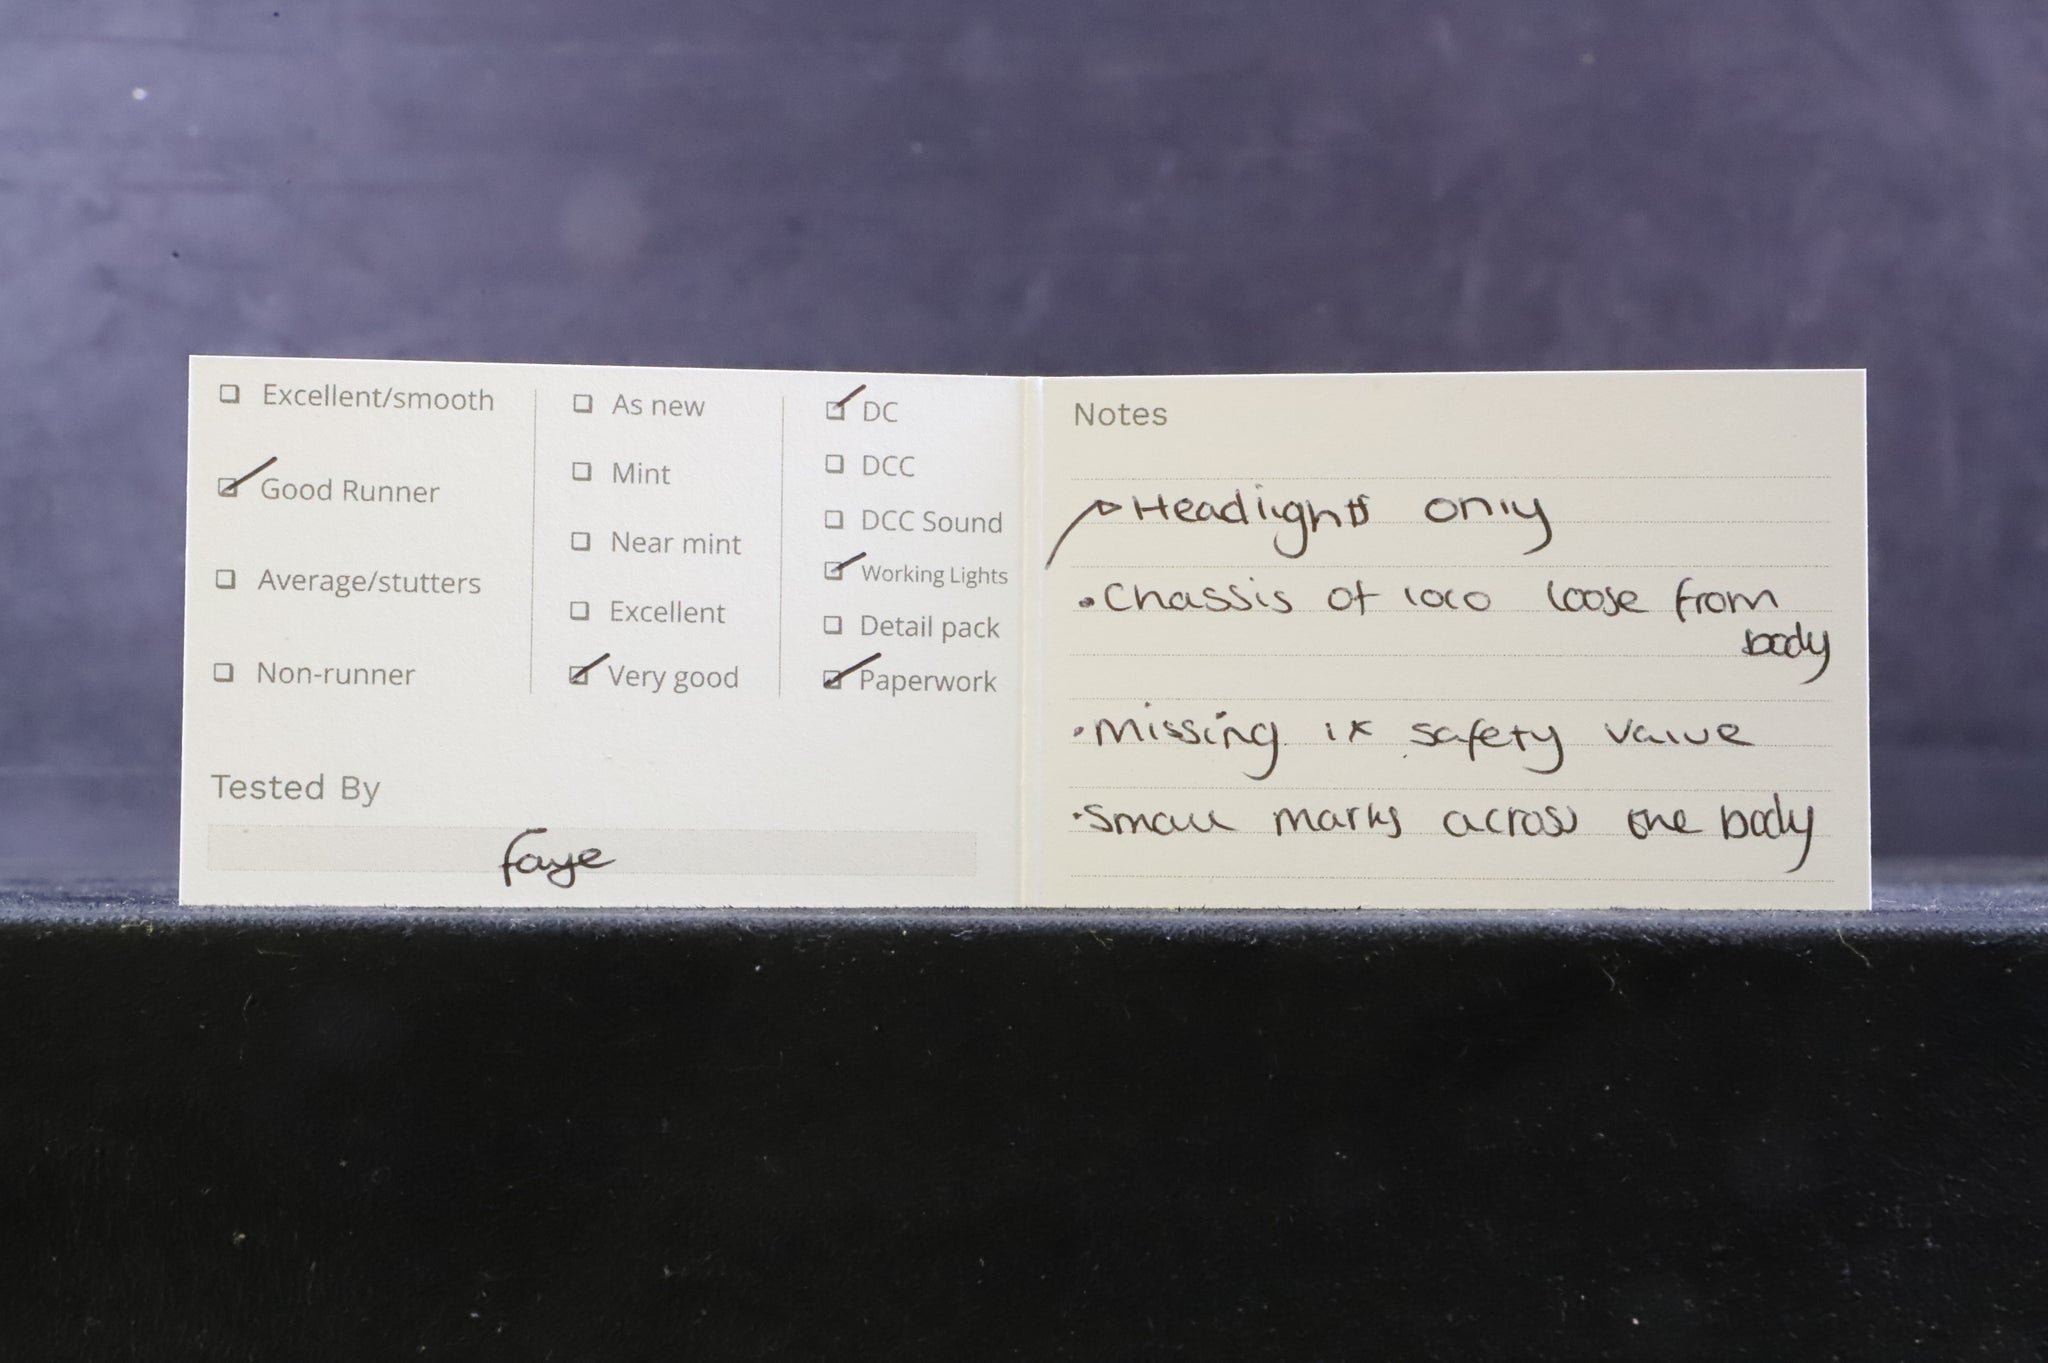 ☐ Excellent/smooth
☑ Good Runner
☐ Average/stutters
☐ Non-runner
☐ As new
☐ Mint
☐ Near mint
☐ Excellent
☑ Very good
☑ DC
☐ DCC
☐ DCC Sound
☑ Working Lights
☐ Detail pack
☑ Paperwork
Tested By
faye
Notes
→ Headlights only
• Chassis of loco loose from
body
• Missing 1x safety valve
• Small marks across the body